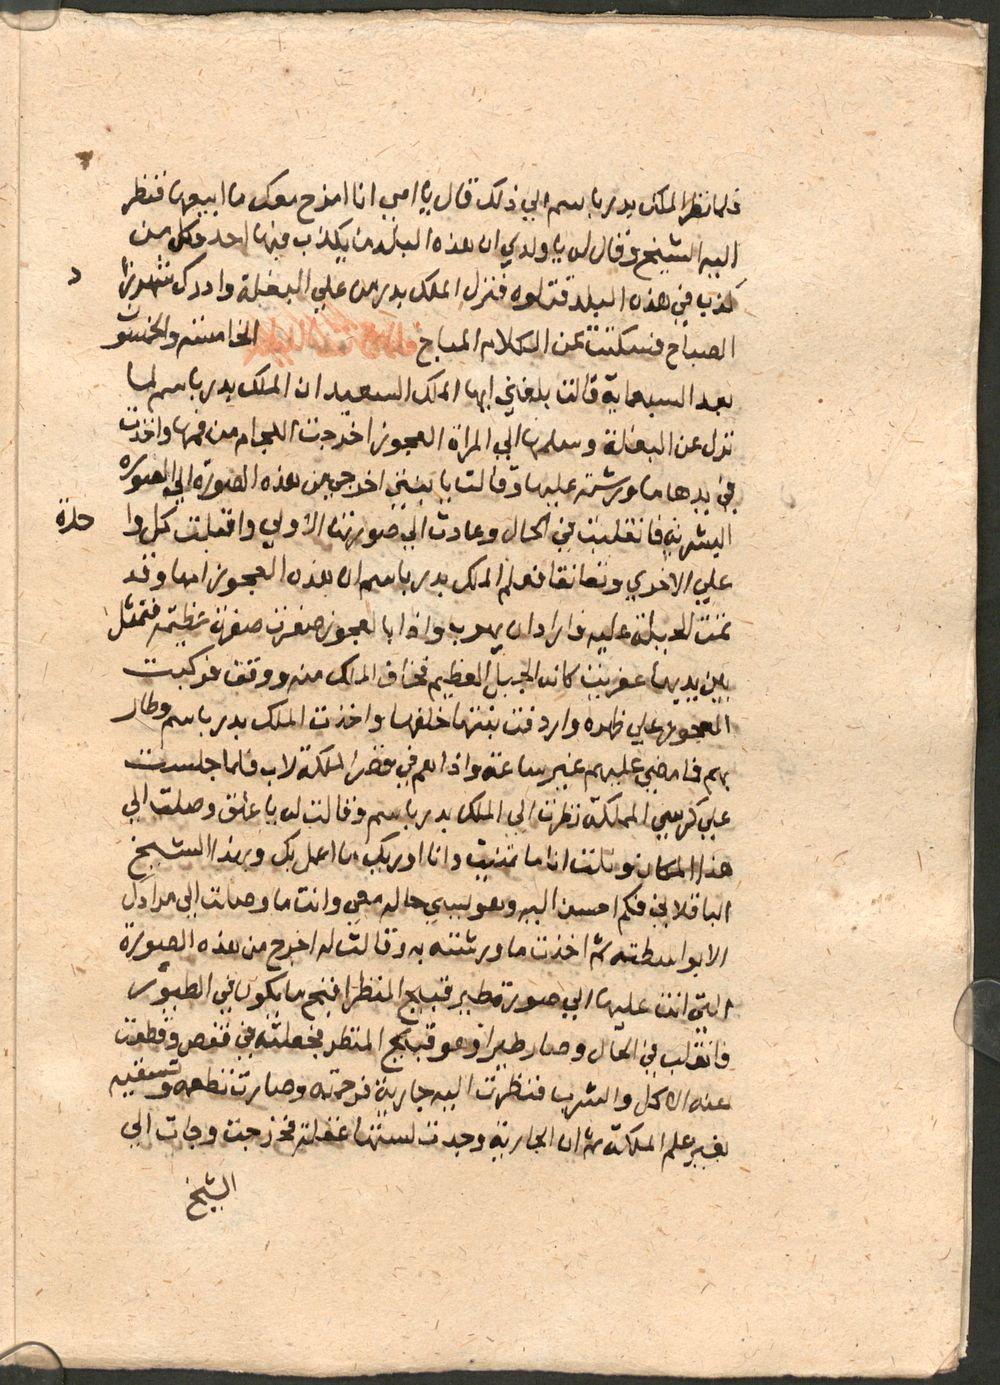 فلما نظر الملك بدر باسم الي ذلك قال يا امي انا امزح معك ما ابيعها فنظر
اليه الشيخ وقال له يا ولدي ان هذه البلد ما يكذب فيها احد وكل من
كذب في هذه البلد قتلوه فنزل الملك بدر من علي البغلة وادرك شهرزاد
الصباح فسكتت عن الكلام المباح فلما كانت الليلة الخامسة والخمسون
بعد السبعماية قالت بلغني ايها الملك السعيد ان الملك بدر باسم لما
نزل عن البغلة وسلمها الي المراة العجوز اخرجت اللجام من فمها واخذت
في يدها ما ورشته عليها وقالت يا بنتي اخرجي من هذه الصورة الي الصورة
البشرية فانقلبت في الحال وعادت الي صورتها الاولي واقبلت كل واحدة
علي الاخري وتعانقا فعلم الملك بدر باسم ان هذه العجوز امها وقد
تمت الحيلة عليه فاراد ان يهرب واذا بالعجوز صفرت صفرة عظيمة فتمثل
بين يديها عفريت كانه الجبل العظيم فخاف الملك منه ووقف فركبت
العجوز علي ظهره واردفت بنتها خلفها واخذت الملك بدر باسم وطار
بهم فما مضي عليهم غير ساعة واذا هم في قصر الملكة لاب فلما جلست
علي كرسي المملكة نظرت الي الملك بدر باسم وقالت له يا علق وصلت الي
هذا المكان ونلت انا ما تمنيت وانا اوريك ما اعمل بك وبهذا الشيخ
الباقلاني فكم احسن اليه وهو يسي حاله معي وانت ما وصلت الي مرادك
الا بواسطته ثم اخذت ما ورشته به وقالت له اخرج من هذه الصورة
التي انت عليها الي صورة طير قبيح المنظر اقبح ما يكون في الطيور
فانقلب في الحال وصار طيرا وهو قبيح المنظر فجعلته في قفص وقطعت
عنه الاكل والشرب فنظرت اليه جارية فرحمته وصارت تطعمه وتسقيه
بغير علم الملكة ثم ان الجارية وجدت لستها غفلة فخرجت وجات الي
الشيخ